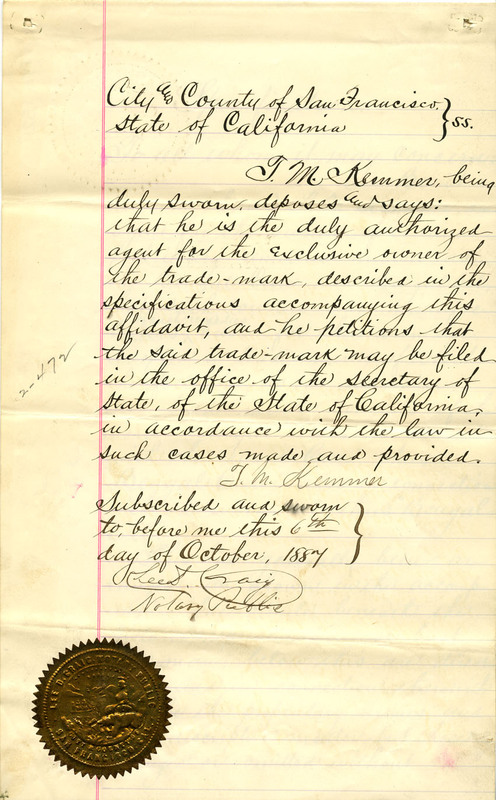 City & County of San Francisco, } ss.
State of California
T. M. Kemmer, being
duly sworn, deposes and says:
that he is the duly authorized
agent for the exclusive owner of
the trade-mark, described in the
specifications accompanying this
affidavit, and he petitions that
the said trade-mark may be filed
in the office of the secretary of
State, of the State of California,
in accordance with the law in
such cases made and provided.
T. M. Kemmer
Subscribed and sworn
to, before me this 6th
day of October, 1887 }
Lee D. Craig
Notary Public
2-472
LEE D. CRAIG NOTARY PUBLIC
SAN FRANCISCO, CAL.